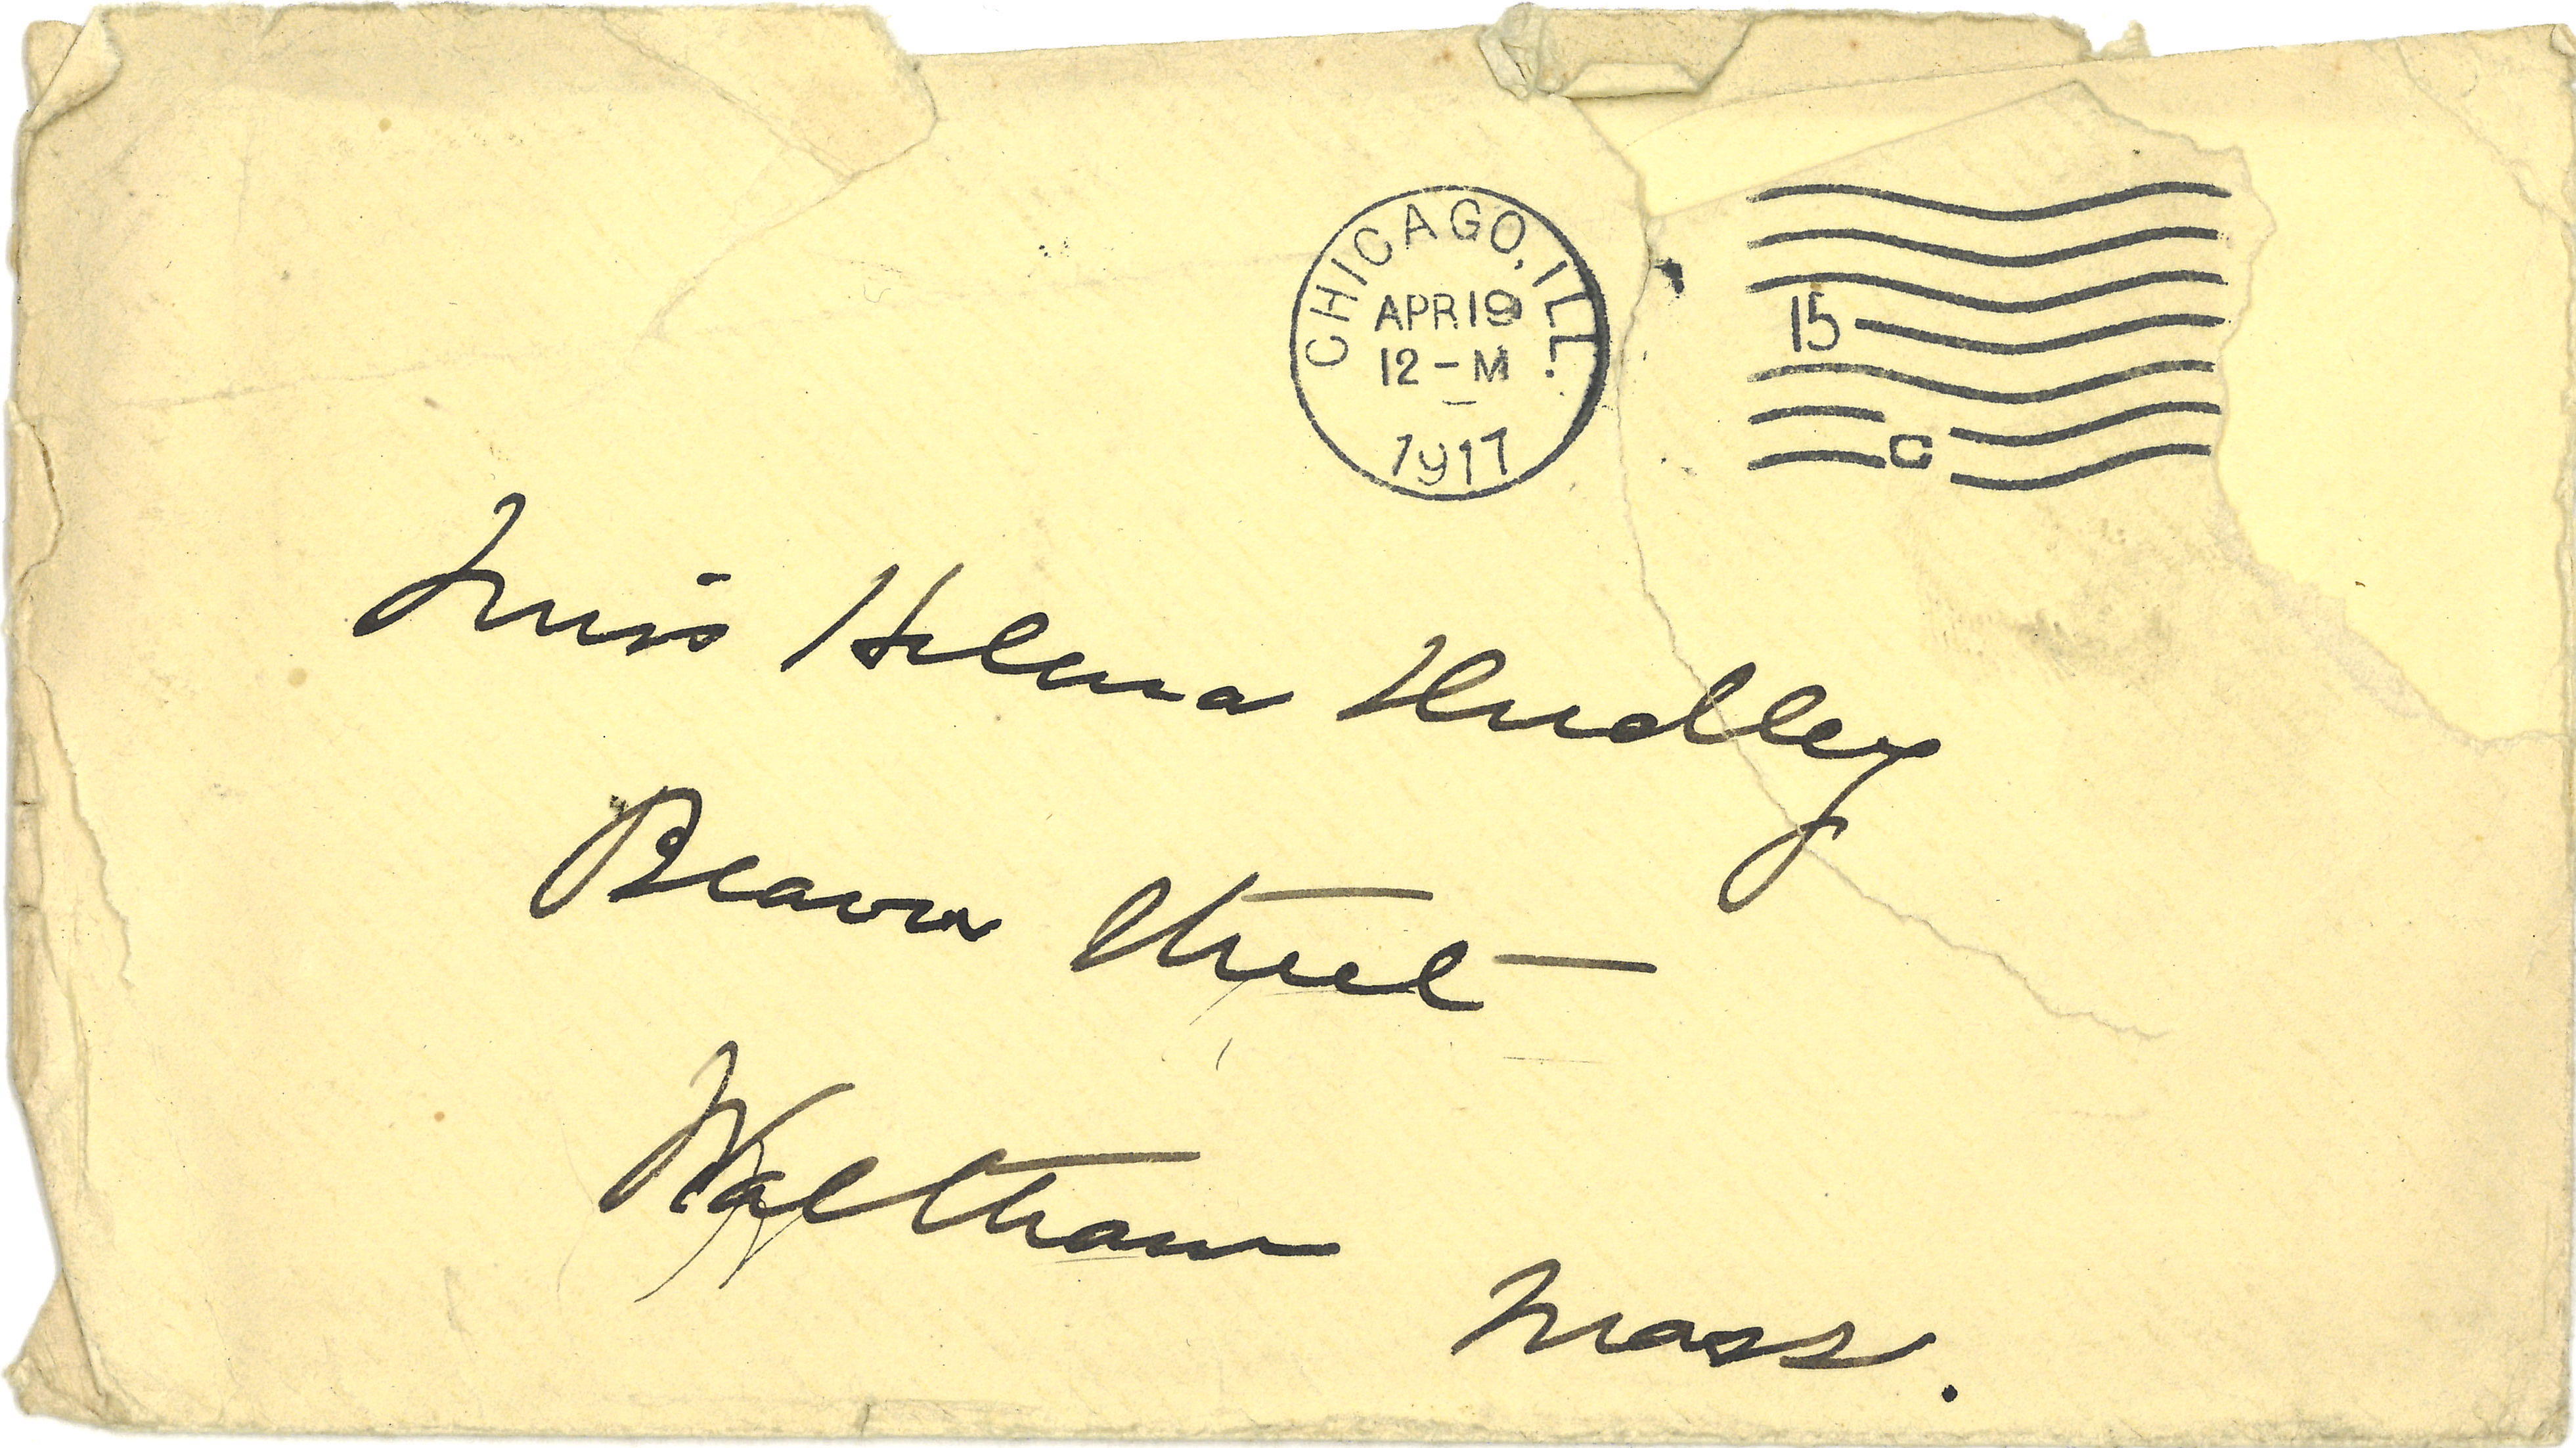 CHICAGO, ILL.
APR 19
12-M
1917
15
C
Miss Helena Hudley
Beaver Street
Waltham Mass.